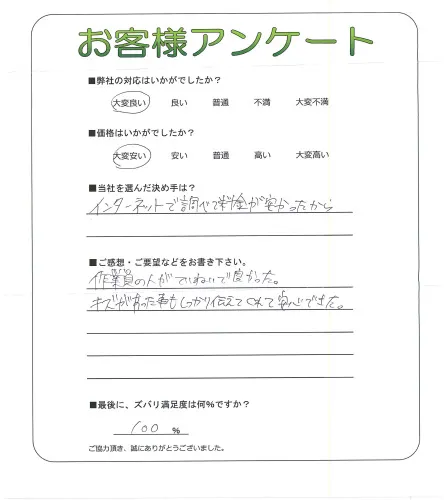 お客様アンケート
■弊社の対応はいかがでしたか?
大変良い 良い 普通 不満 大変不満
■価格はいかがでしたか?
大変安い 安い 普通 高い 大変高い
■当社を選んだ決め手は?
インターネットで調べて料金が安かったから
■ご感想・ご要望などをお書き下さい。
作業員の人がていねいで良かった。
キズがあった事もしっかり伝えてくれて安心できた。
■最後に、ズバリ満足度は何%ですか?
100 %
ご協力頂き、誠にありがとうございました。